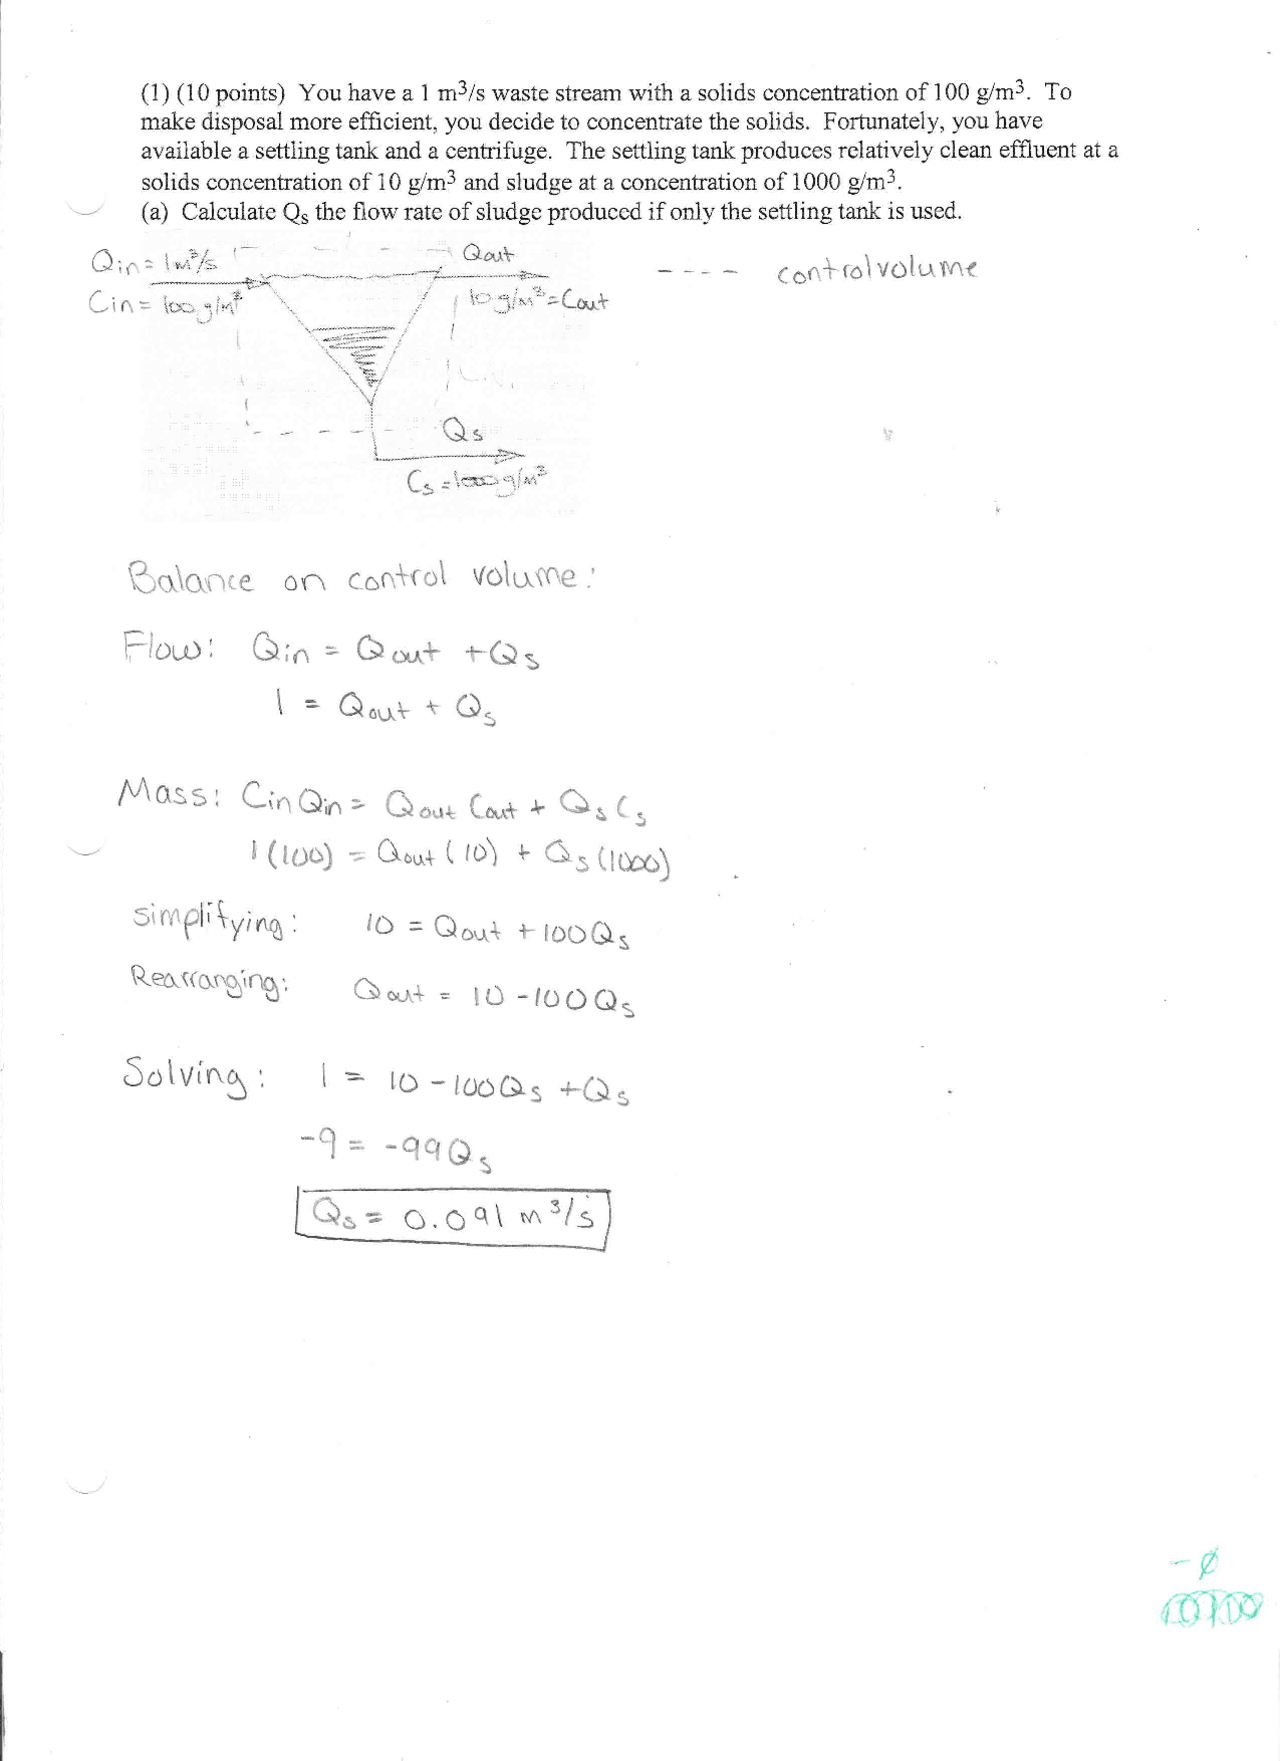 (1) (10 points) You have a 1 m³/s waste stream with a solids concentration of 100 g/m³. To
make disposal more efficient, you decide to concentrate the solids. Fortunately, you have
available a settling tank and a centrifuge. The settling tank produces relatively clean effluent at a
solids concentration of 10 g/m³ and sludge at a concentration of 1000 g/m³.
(a) Calculate Qs the flow rate of sludge produced if only the settling tank is used.
Qin = 1m³/s
Qout
---- control volume
Cin = 100 g/m³
10 g/m³ = Cout
Qs
Cs = 1000 g/m³
Balance on control volume:
Flow: Qin = Qout + Qs
1 = Qout + Qs
Mass: Cin Qin = Qout Cout + Qs Cs
1(100) = Qout (10) + Qs (1000)
simplifying: 10 = Qout + 100Qs
Rearranging: Qout = 10 - 100Qs
Solving: 1 = 10 - 100Qs + Qs
-9 = -99Qs
Qs = 0.091 m³/s